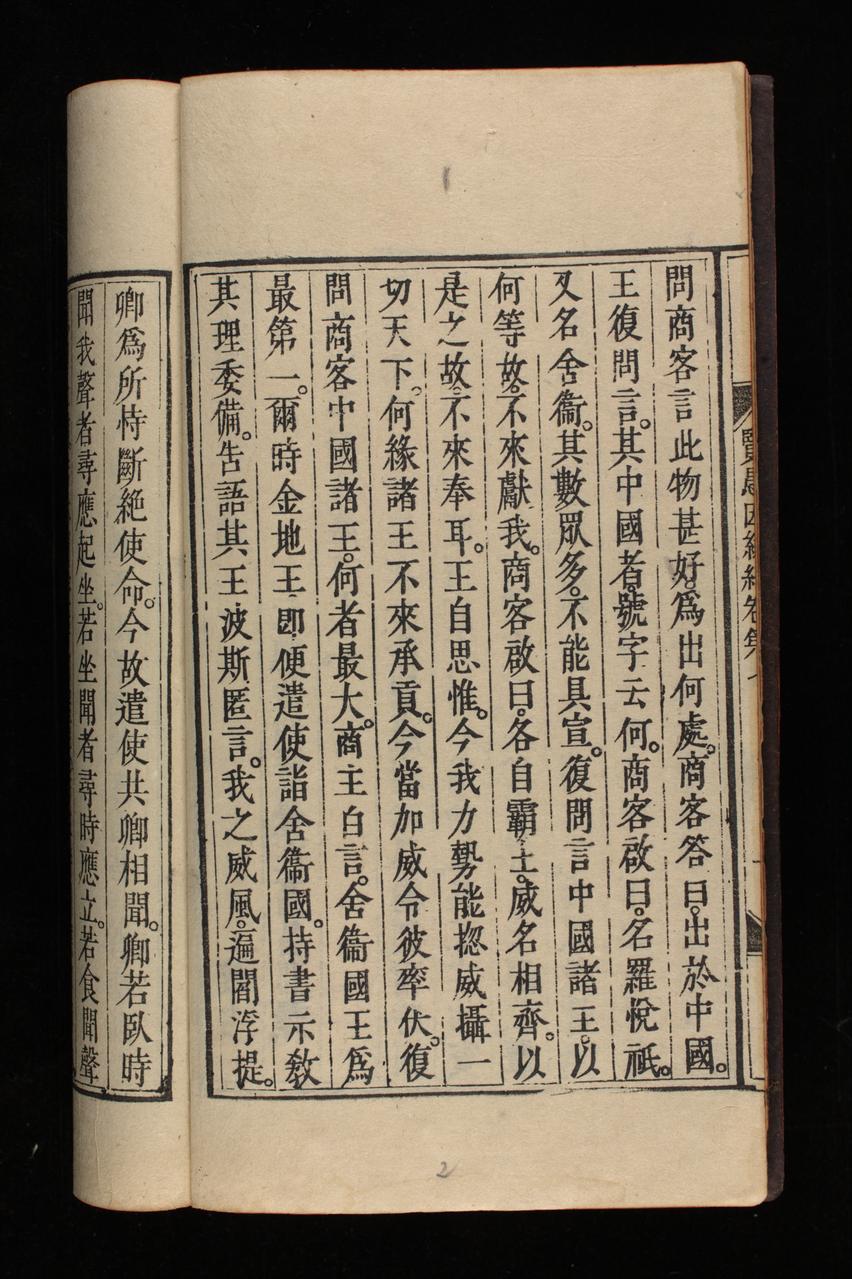 問商客言此物甚好。爲出何處。商客答曰。出於中國。
王復問言。其中國者。號字云何。商客啟曰。名羅悅祇。
又名舍衞。其數眾多。不能具宣。復問言中國諸王。以
何等故。不來獻我。商客啟曰。各自霸土。威名相齊。以
是之故。不來奉耳。王自思惟。今我力勢能揔威攝一
切天下。何緣諸王不來承貢。今當加威令彼率伏。復
問商客中國諸王。何者最大。商主白言。舍衞國王爲
最第一。爾時金地王即便遣使詣舍衞國。持書示教
其理委備。告語其王波斯匿言。我之威風。遍閻浮提。
卿爲所恃斷絕使命。今故遣使共卿相聞。卿若臥時
聞我聲者尋應起坐。若坐聞者尋時應立。若食聞聲
賢愚因緣經卷第
2